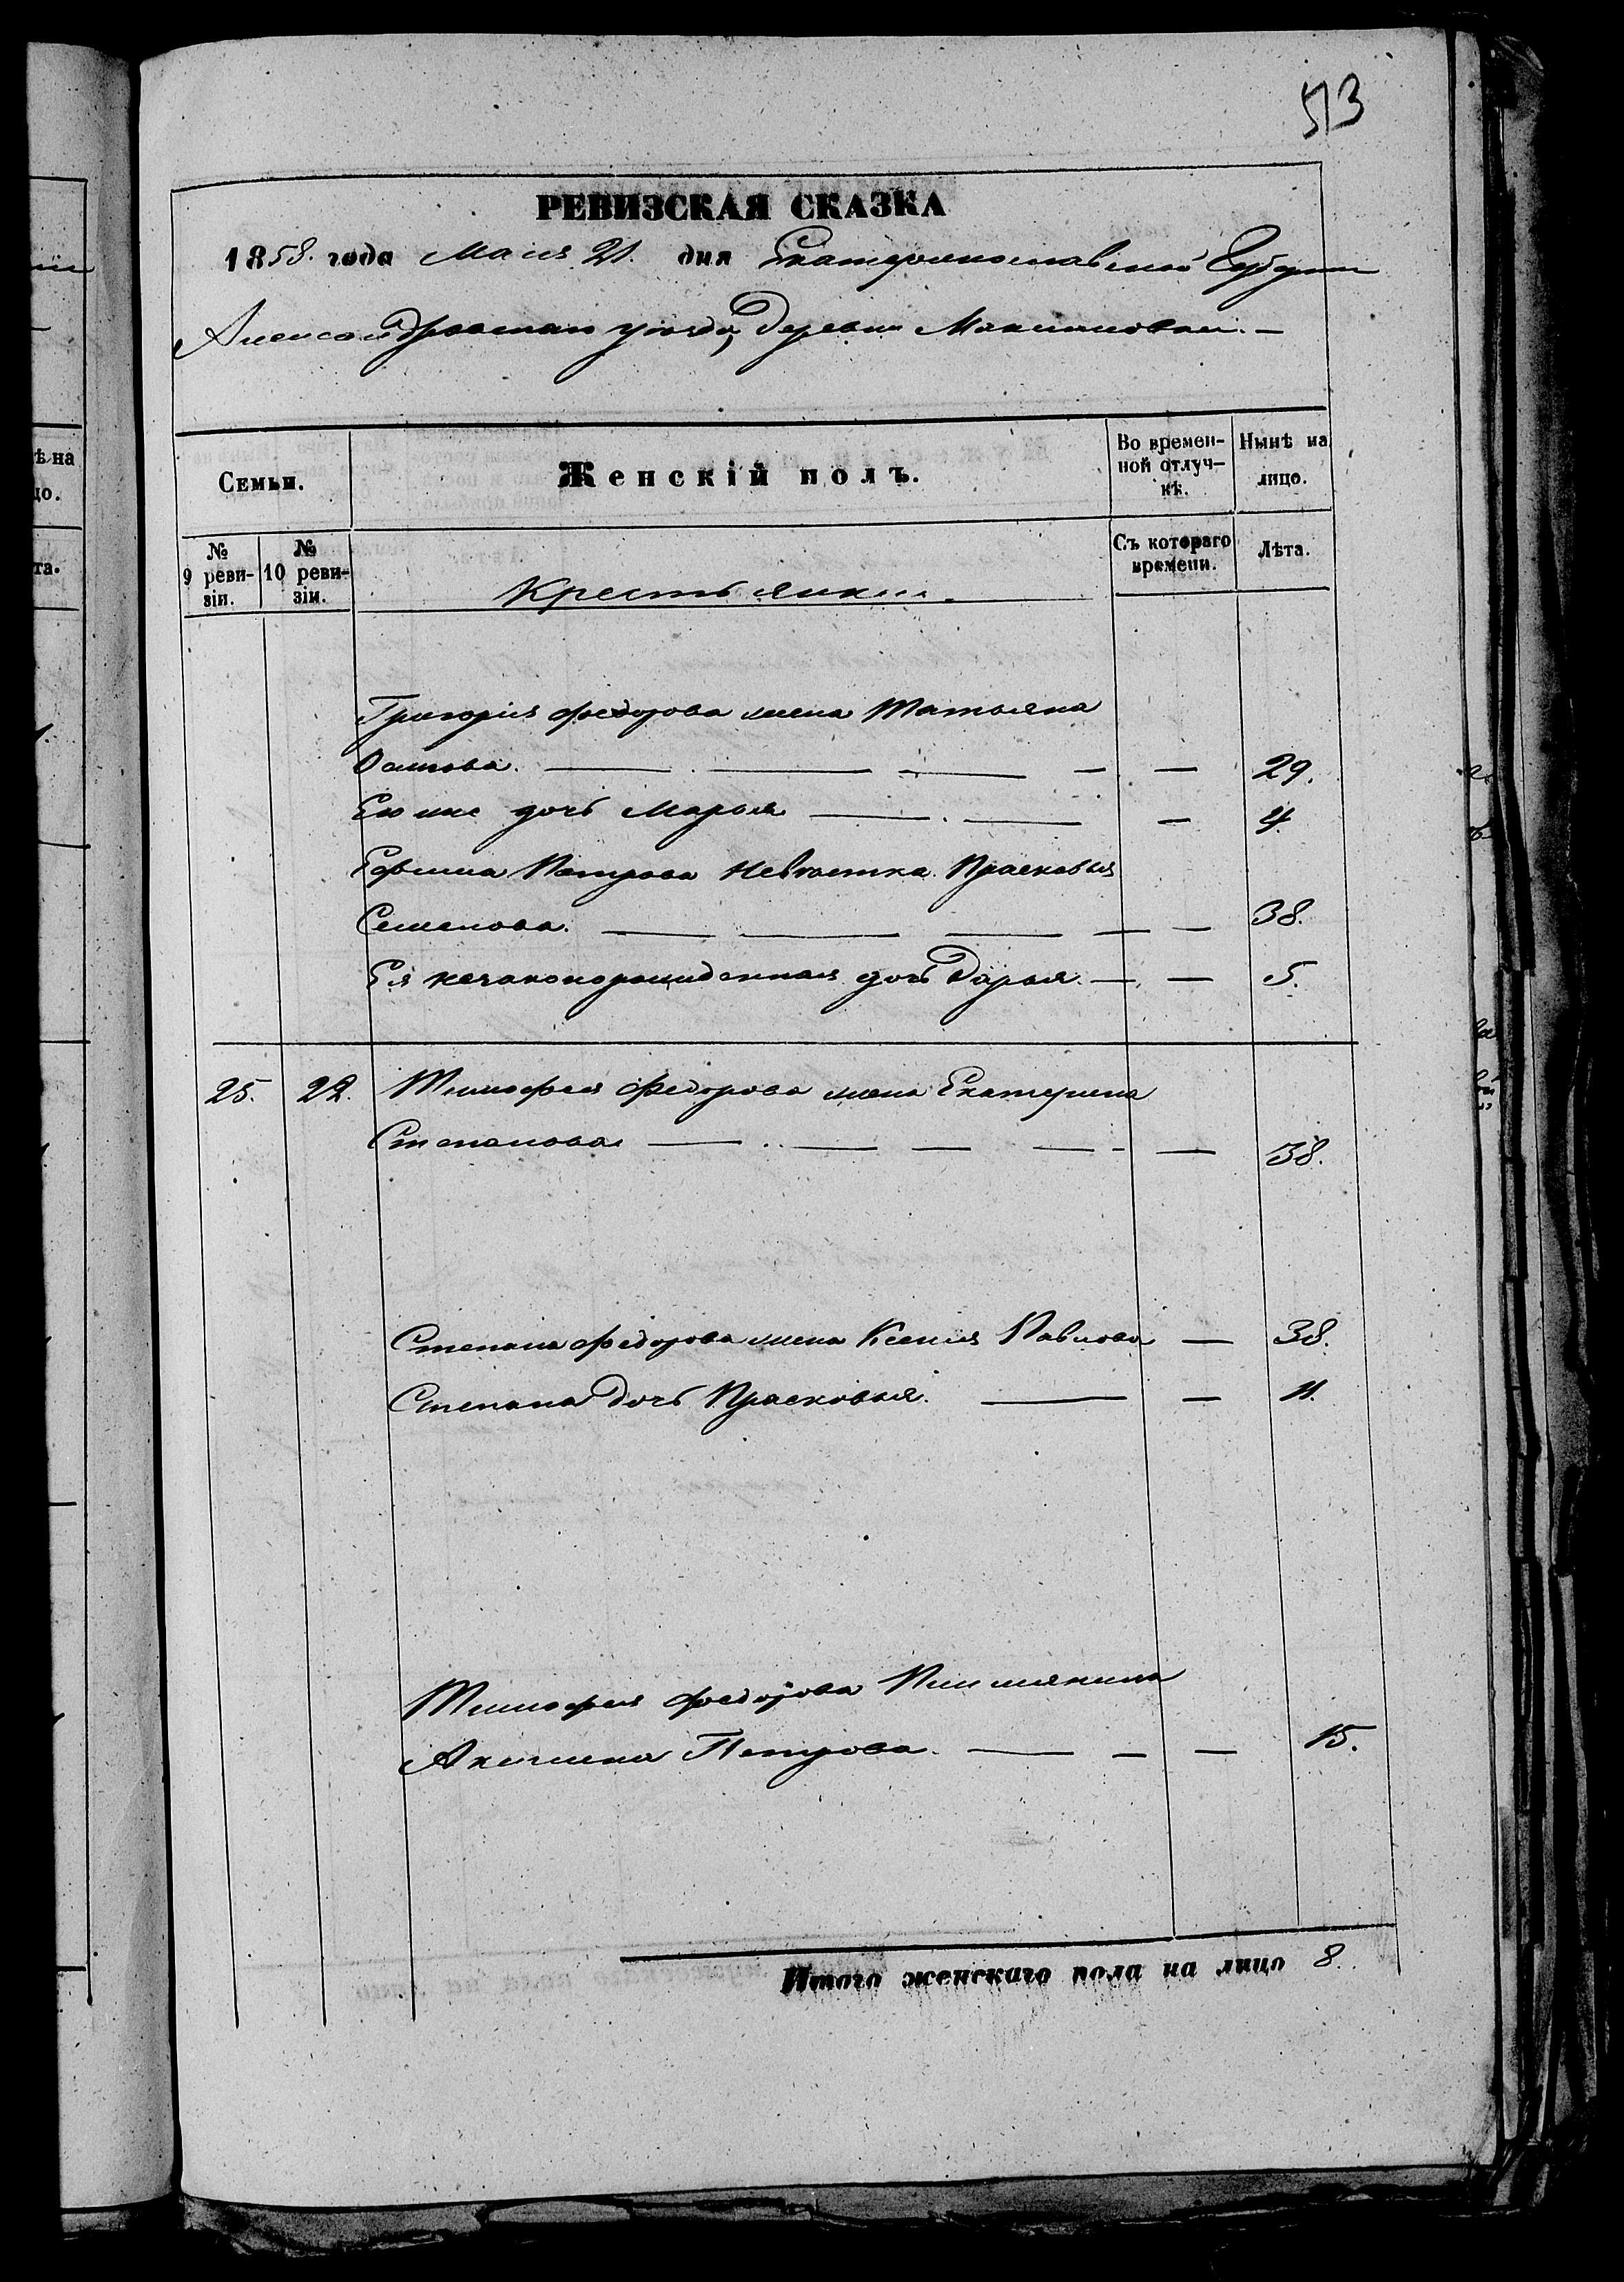 513
РЕВИЗСКАЯ СКАЗКА
1858. года Мая 21. дня Екатеринославской Губернии
Александровскаго уѣзда, деревни Максимовки. —
Семьи.
Женскій полъ.
Во времен-
ной отлуч-
кѣ.
Нынѣ на
лицо.
№
9 реви-
зіи.
№
10 реви-
зіи.
Крестьянки.
Съ котораго
времени.
Лѣта.
Григорія Федорова жена Татьяна
— — — — — 29.
Ею же дочь Марья — — — 4.
Ефима Петрова невѣстка Прасковья
Семенова. — — — — — 38.
Ея незаконорожденная дочь Дарья. — — 5.
25. 22. Тимофея Федорова жена Екатерина
Степанова — — — — — 38.
Степана Федорова жена Ксенія Павлова — 38.
Степана дочь Прасковья. — — 11.
Тимофея Федорова Племянница
Акилина Петрова. — — — 15.
Итого женскаго пола на лицо 8.